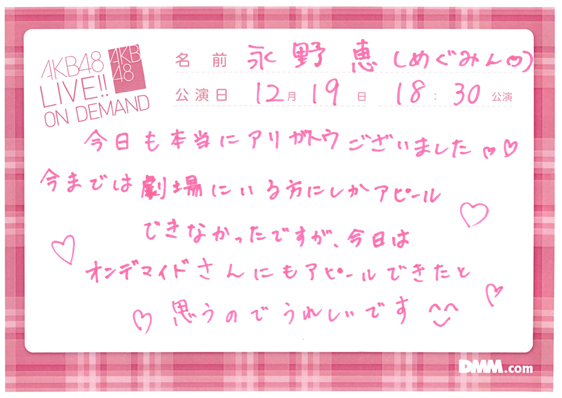 AKB48
LIVE!!
ON DEMAND
AKB
48
名前 永野恵(めぐみん♡)
公演日 12月19日 18:30公演
今日も本当にアリガトウございました♡♡
今までは劇場にいる方にしかアピール
できなかったですが、今日は
オンデマイドさんにもアピールできたと
思うのでうれしいです^^
DMM.com